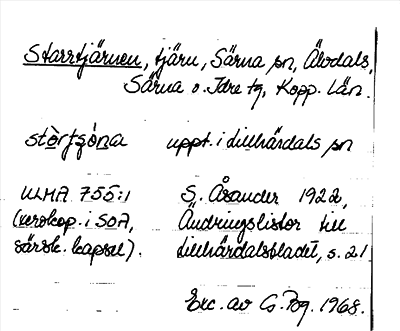 Starrtjärnen, tjärn, Särna sn, Älvdals,
Särna o. Idre tg, Kopp. Län.
stòrtʂó̱na uppt. i Lillhärdals sn
ULMA 755:1 S. Åsander 1922,
(xerokop. i SOA, Ändringslistor till
särsk. kapsel). Lillhärdalsbladet, s. 21
Exc. av G. Pg. 1968.